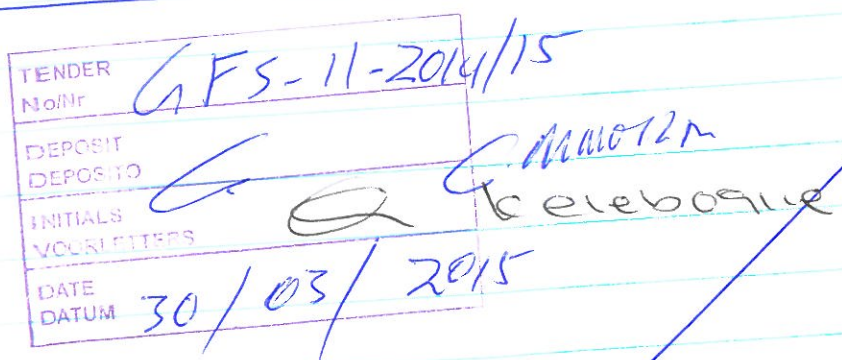 TENDER
No/Nr GFS-11-2014/15
DEPOSIT
DEPOSITO
INITIALS
VOORLETTERS
DATE
DATUM 30/03/2015